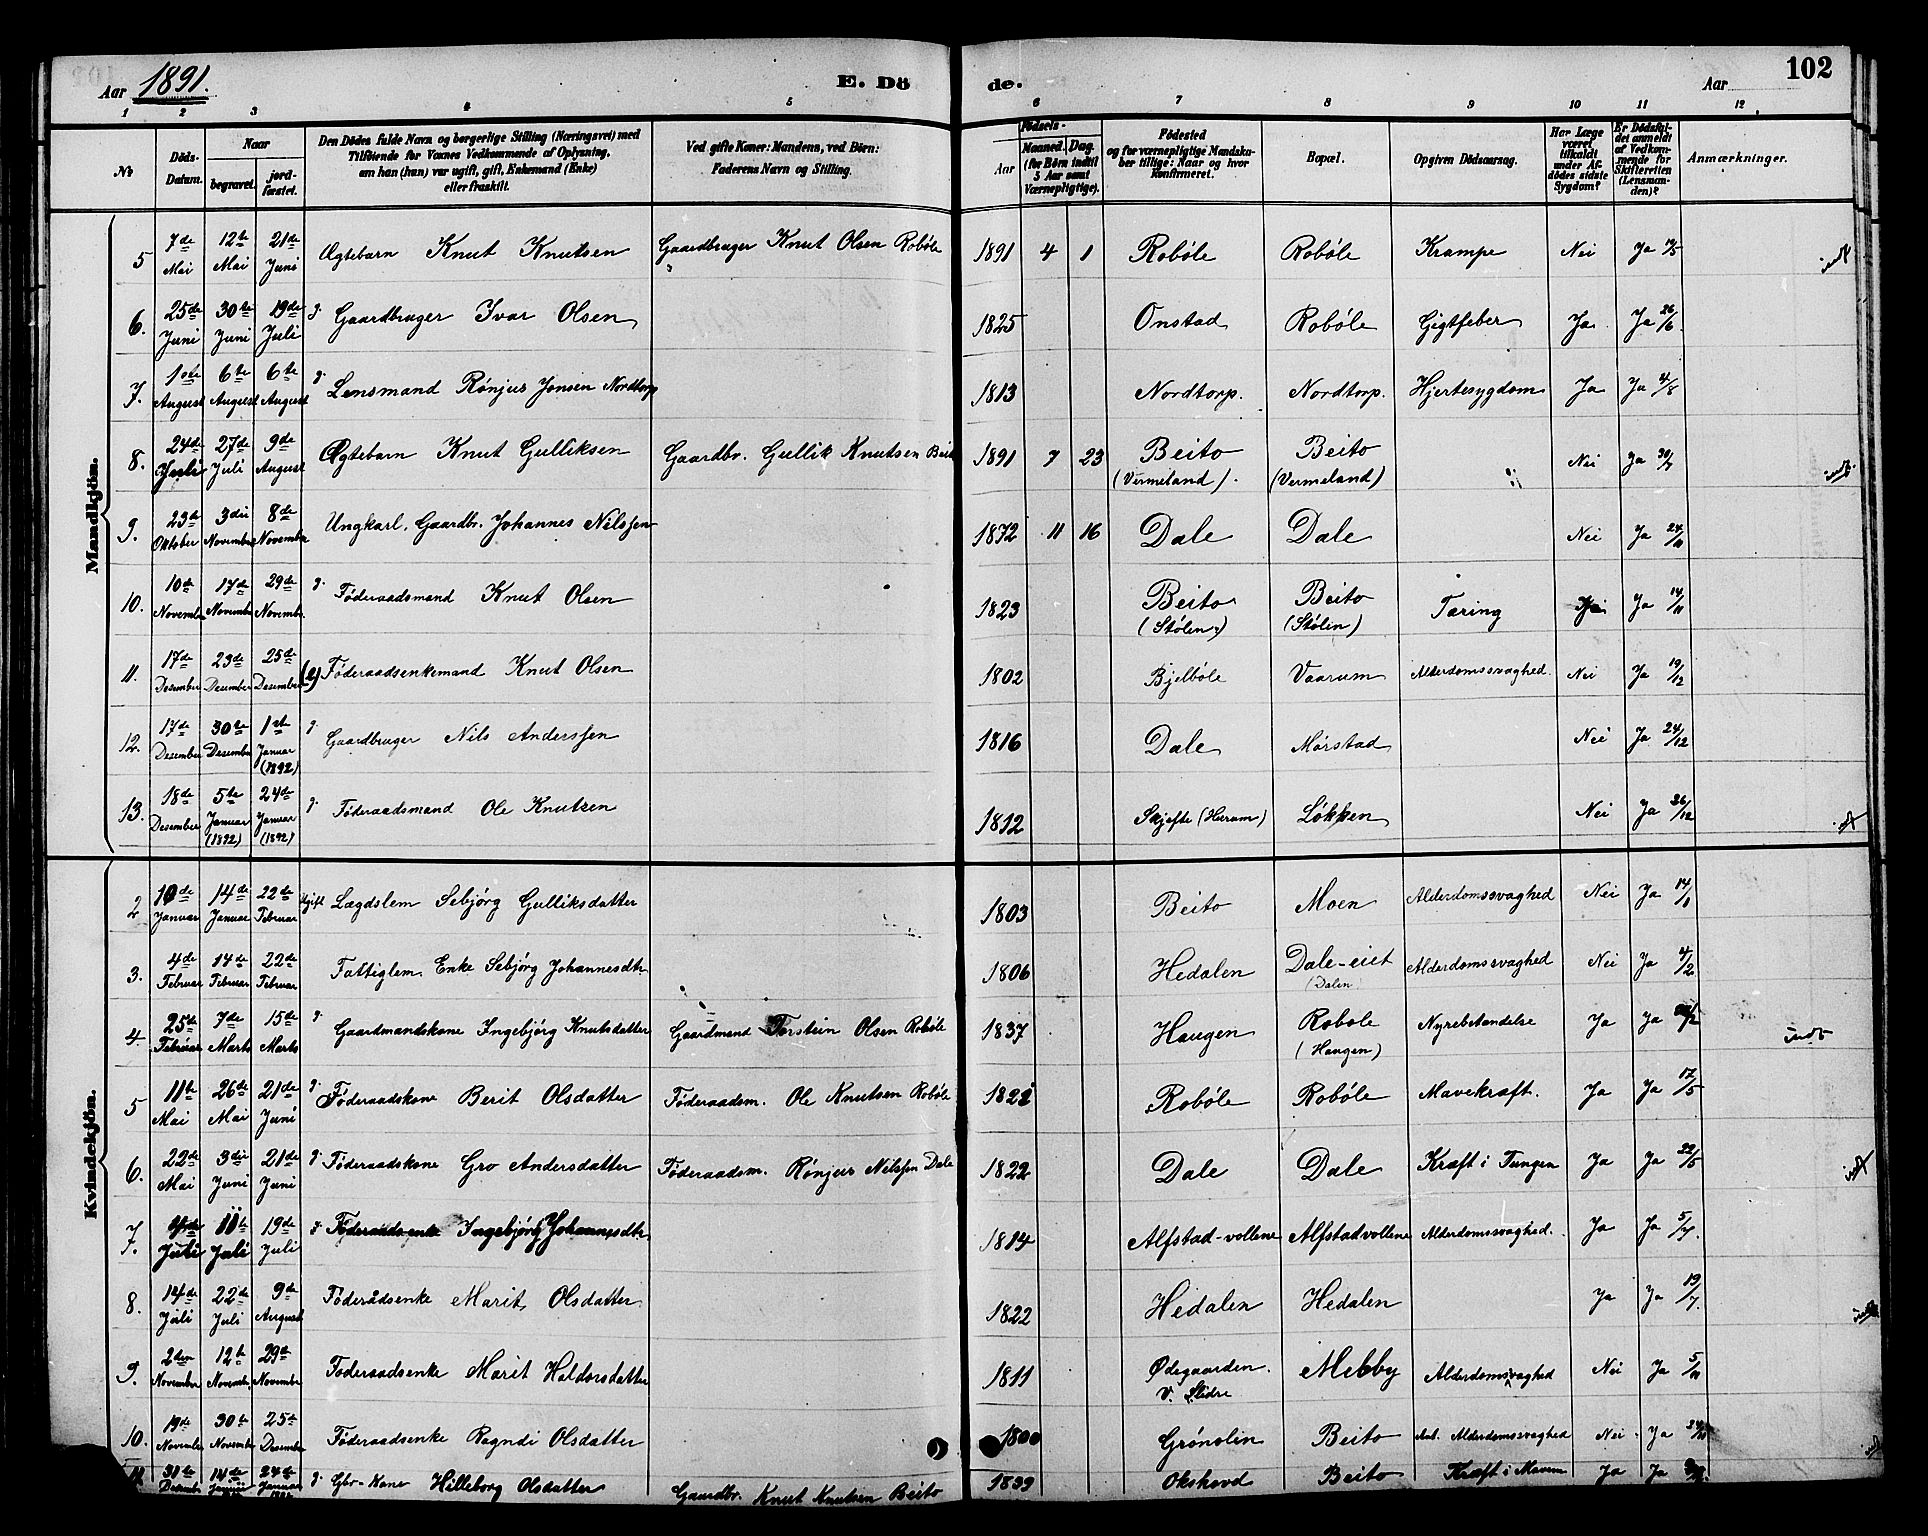 Aar 1891. E. Døde. Aar 102
1 2 3 4 5 6 7 8 9 10 11 12
№ Døds-Datum. Naar begravet. jord-fæstet. Den Dødes fulde Navn og borgerlige Stilling (Næringsvei) med Tilføiende for Voxnes Vedkommende af Oplysning, om han (hun) var ugift, gift, Enkemand (Enke) eller fraskilt. Ved gifte Koner: Mandens, ved Børn: Faderens Navn og Stilling. Fødsels- Aar Maaned. Dag. (for Børn indtil 5 Aar samt Værnepligtige). Fødested og for værnepligtige Mandskaber tillige: Naar og hvor Konfirmeret. Bopæl. Opgiven Dødsaarsag. Har Læge været tilkaldt under Afdødes sidste Sygdom? Er Dødsfaldet anmeldt af Vedkommende for Skifteretten (Lensmanden)? Anmærkninger.
Mandkjøn.
5 7de Mai 12te Mai 21de Juni Ægtebarn Knut Knutsen Gaardbruger Knut Olsen Robøle 1891 4 1 Robøle Robøle Krampe Nei Ja
6. 25de Juni 30te Juni 19de Juli g. Gaardbruger Ivar Olsen 1825 Onstad Robøle Gigtfeber Ja Ja 26/6
7. 1ste August 6te August 6te August g. Lensmand Rønjus Jonsen Nordtorp 1813 Nordtorp. Nordtorp. Hjertesygdom Ja Ja 4/8
8. 24de Juli 27de Juli 9de August Ægtebarn Knut Gulliksen Gaardbr. Gullik Knutsen Beito 1891 7 23 Beito (Vermeland). Beito (Vermeland) Nei Ja 30/7
9. 23de Oktober 3die November 8de November Ungkarl, Gaardbr. Johannes Nilssen 1872 11 16 Dale Dale Nei Ja 24/11
10. 10de November 17de November 29de November. g. Føderaadsmand Knut Olsen 1823 Beito (Stølen) Beito (Stølin) Tæring Ja 14/11
11. 17de Desember 23de Desember 25de Desember (e) Føderaadsenkemand Knut Olsen 1802 Bjelbøle Vaarum Alderdomssvaghed. Nei Ja 19/12
12. 17de Desember 30te Desember 1ste Januar (1892) g. Gaardbruger Nils Anderssen 1816 Dale Mørstad Nei Ja 24/12
13. 18de Desember 5te Januar (1892) 24de Januar (1892) g. Føderaadsmand Ole Knutsen 1812 Skjefte (Hurum) Løkken Nei Ja 26/12
Kvindekjøn.
2 10de Januar 14de Januar 22de Februar Ugift Lægdslem Sebjørg Gulliksdatter 1803 Beito Moen Alderdomssvaghed Nei Ja 14/1
3. 4de Februar 14de Februar 22de Februar Fattiglem. Enke Sebjørg Johannesdtr 1806 Hedalen Dale-eiet (Dalen) Alderdomssvaghed Nei Ja 4/2
4. 25de Februar 7de Marts 15de Marts g. Gaardmandskone Ingebjørg Knutsdatter Gaardmand Torstein Olsen Robøle 1837 Haugen Robøle (Haugen) Nyrebetændelse Ja Ja
5 11te Mai 26de Mai 21de Juni g. Føderaadskone Berit Olsdatter Føderaadsm. Ole Knutsen Robøle 1821 Robøle Robøle Mavekræft. Ja Ja 17/5
6. 22de Mai 3die Juni 21de Juni g. Føderaadskone Gro Andersdatter Føderaadsm. Rønjus Nilssen Dale 1822 Dale Dale Kræft i Tungen Ja Ja 22/5
7. 4de Juli 11te Juli 19de Juli g. Føderaadsenke Ingebjørg Johannesdtr 1814 Alfstad-vollene Alfstadvollene Alderdomssvaghed. Ja Ja 5/7.
8. 14de Juli 22de Juli 9de August Føderådsenke Marit Olsdatter 1822 Hedalen Hedalen Ja Ja 19/7.
9. 2den November 12te November. 29de November Føderaadsenke Marit Haldorsdatter 1811 Ødegaarden V. Slidre Mebby Alderdomssvaghed Nei Ja 5/11
10. 19de November 30te November 25de Desember Føderaadsenke Ragndi Olsdatter 1800 Grønolin Beito Alderdomssvaghed Nei Ja
11 31te Desembr 14de Januar 24de Januar g. Gbr-Kone Hilleborg Olsdatter Gaardbr. Knut Knutsen Beito 1839 Okshovd Beito Kræft i Maven Ja Ja